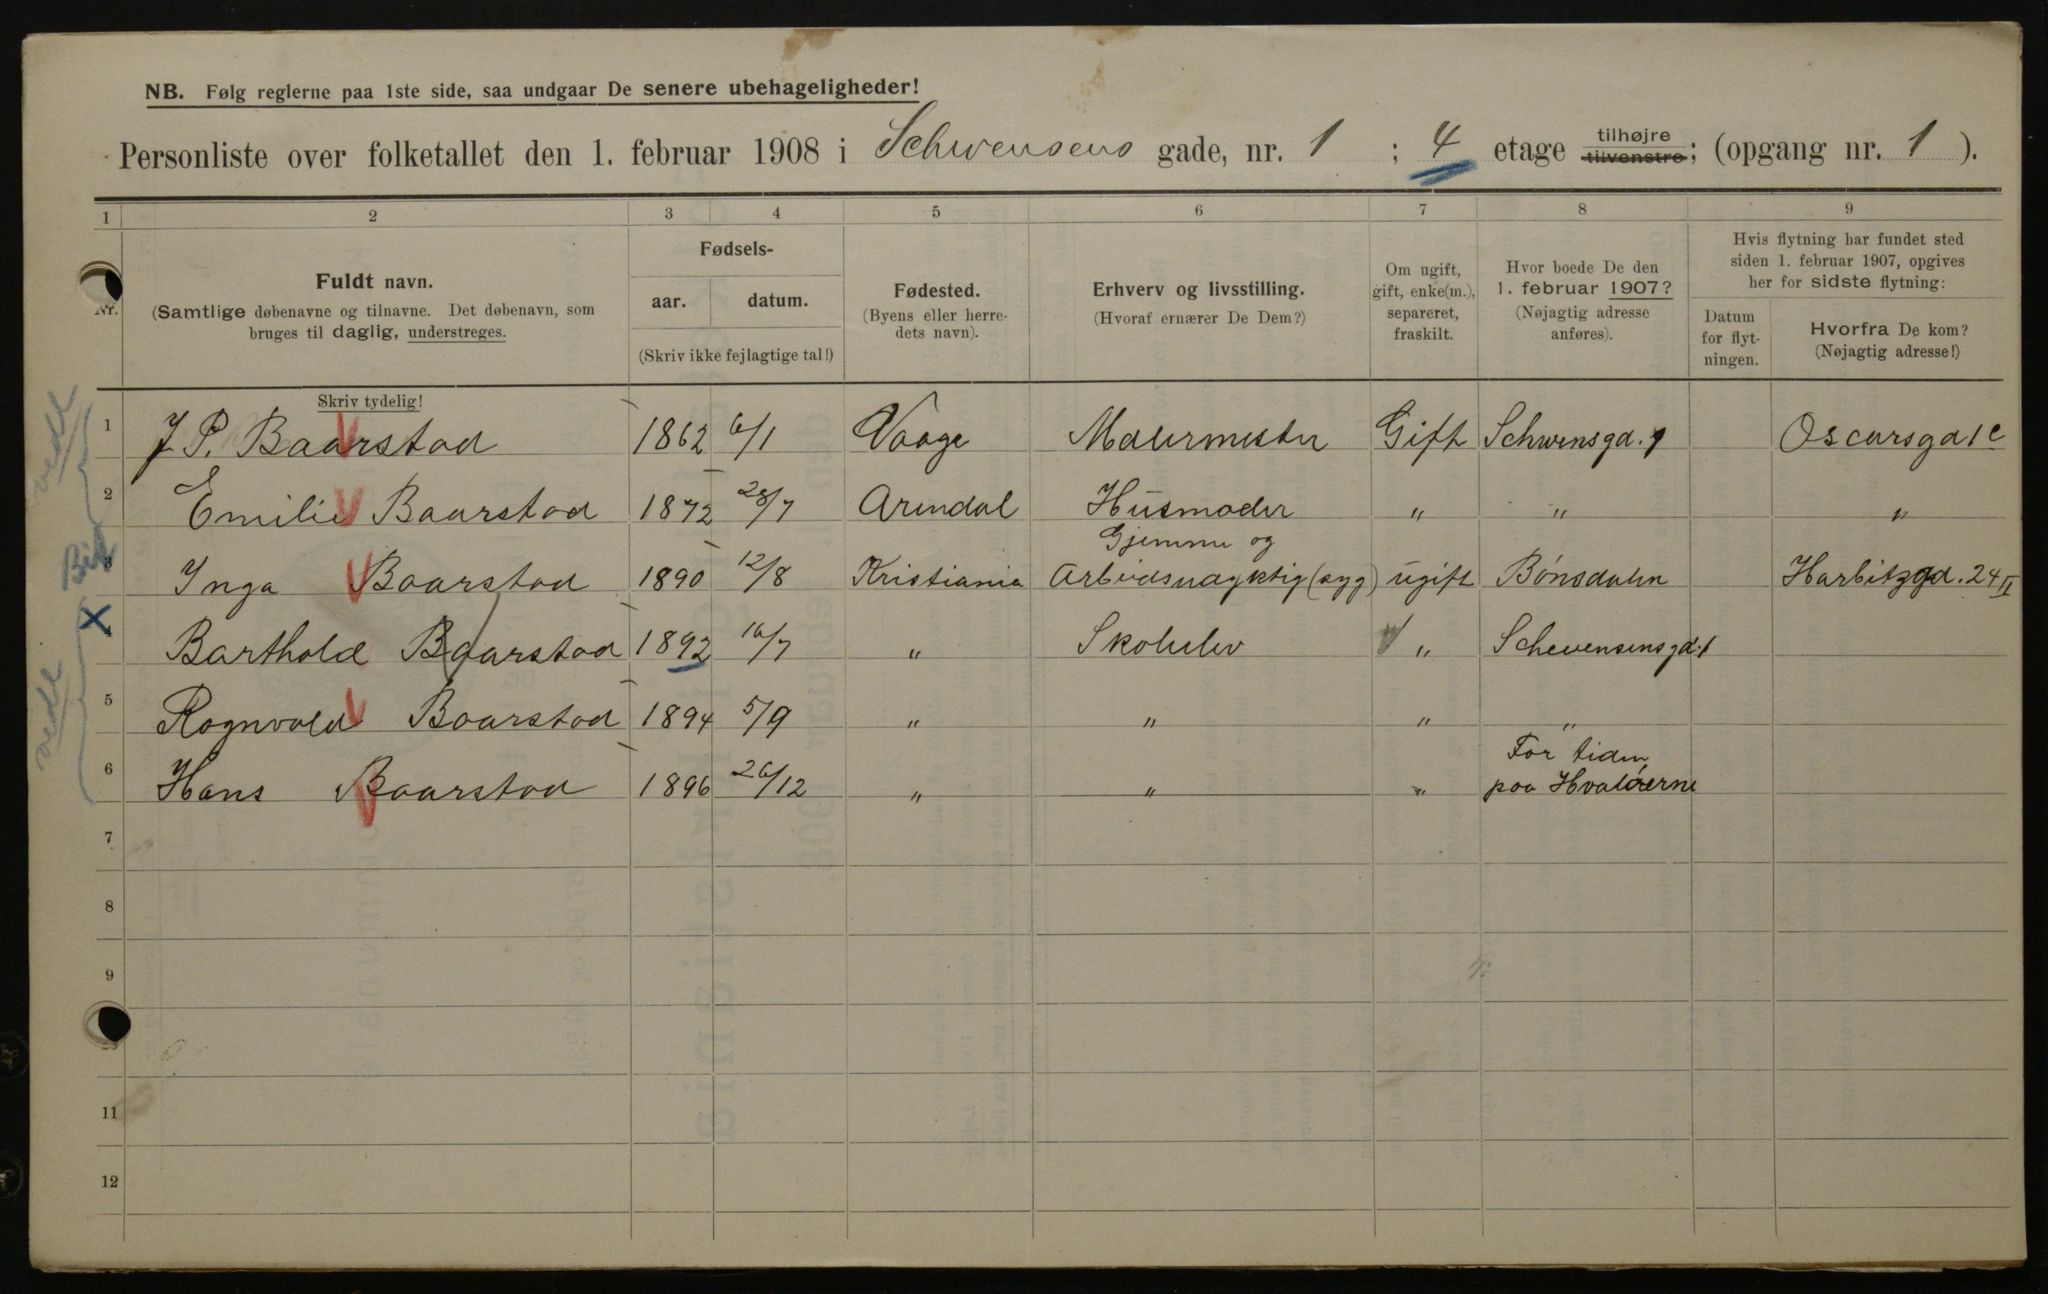 NB. Følg reglerne paa 1ste side, saa undgaar De senere ubehageligheder!
Personliste over folketallet den 1. februar 1908 i Schwensens gade, nr. 1 ; 4 etage tilhøjre tilvenstre; (opgang nr. 1 ).
1 2 3 4 5 6 7 8 9
Nr.
Fuldt navn.
(Samtlige døbenavne og tilnavne. Det døbenavn, som
bruges til daglig, understreges.
Skriv tydelig!
Fødsels-
aar. datum.
(Skriv ikke fejlagtige tal!)
Fødested.
(Byens eller herre-
dets navn).
Erhverv og livsstilling.
(Hvoraf ernærer De Dem?)
Om ugift,
gift, enke(m.),
separeret,
fraskilt.
Hvor boede De den
1. februar 1907?
(Nøjagtig adresse
anføres).
Hvis flytning har fundet sted
siden 1. februar 1907, opgives
her for sidste flytning:
Datum
for flyt-
ningen.
Hvorfra De kom?
(Nøjagtig adresse!)
1 J. P. Baarstad 1862 6/1 Vaage Maurmester Gift Schwensgd. 1 Oscarsgd 1 c
2 Emilie Baarstad 1872 28/7 Arendal Husmoder " " "
3 Inga Baarstad 1890 12/8 Kristiania Gjemme og
Arbeidsuagktig (syg) ugift Bónsdahn Harbitzgd. 24 II
4 Barthold Baarstad 1892 16/7 " Skoleelev " Schevensensgd. 1
5 Ragnvald Baarstad 1894 5/9 " " " "
6 Hans Baarstad 1896 26/12 " " " For tiden
paa Hvalóerne
7
8
9
11
12